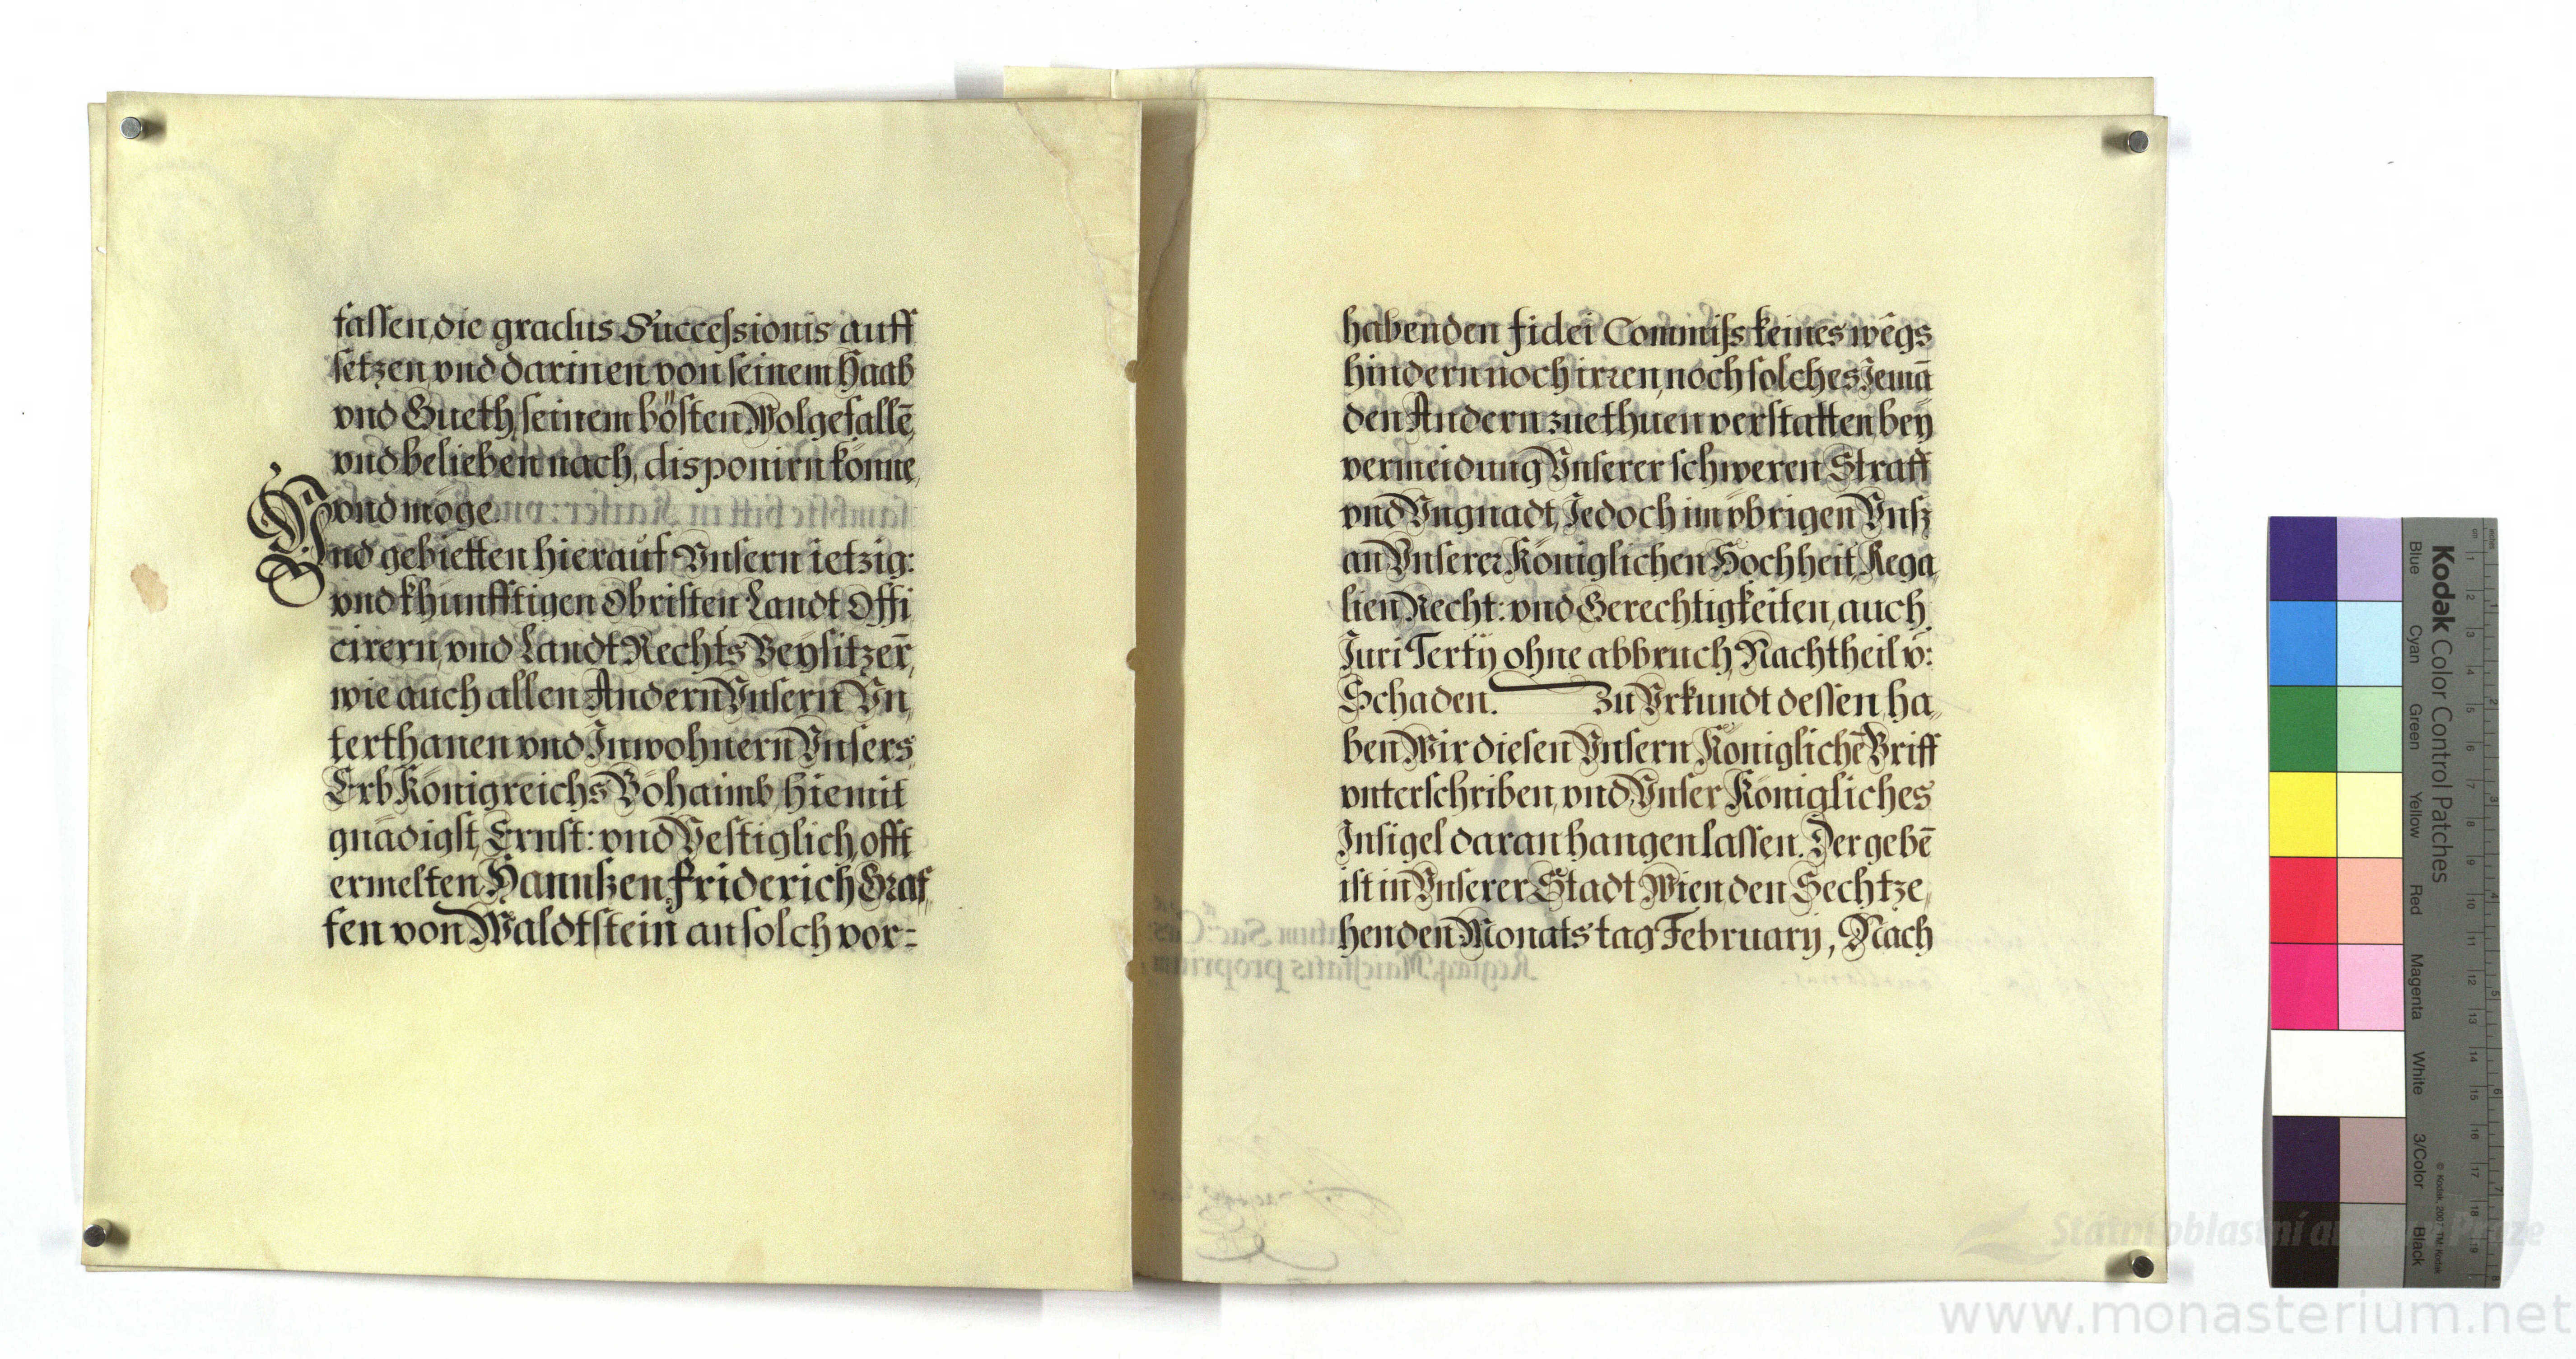 fassen, die gradus Successionis auff
setzen, vnd darinen von seinem Haab
vnd Gueth, seinem bösten Wolgefallē,
vnd belieben nach, disponirn könne,
vnd möge.
Vnd gebietten hierauf Vnsern ietzig:
vnd khunfftigen Obristen Landt Offi
cirern, vnd Landt Rechts Beysitzern̄,
wie auch allen Andern Vnsern Vn,
terthanen vnd Inwohnern Vnsers
Erb Königreichs Böhaimb, hiemit
gnädigst, Ernst: vnd Vestiglich, offt
ermelten Hannßen Friderich Graf,
fen von Waldtstein an solch vor=
habenden fidei Commiss keines wêgs
hindern noch irren, noch solches Jemā
den Andern zuethuen verstatten, bey
vermeidung Vnserer schweren Straff
vnd Vngnadt, Jedoch im vbrigen Vnß
an Vnserer Königlichen Hochheit, Rega,
lien, Recht: vnd Gerechtigkeiten, auch
Juri Tertÿ ohne abbruch, Nachtheil v̄:
Schaden. Zu Vrkundt dessen, ha,
ben Wir diesen Vnsern Königlichē Briff
vnterschriben, vnd Vnser Königliches
Insigel daran hangen lassen. Der gebē
ist in Vnserer Stadt Wien den Sechtze,
henden Monats tag February, Nach
Kodak Color Control Patches
Blue
Cyan
Green
Yellow
Red
Magenta
White
3/Color
Black
© Kodak, 2007 TM: Kodak
Státní oblastní archiv v Praze
www.monasterium.net